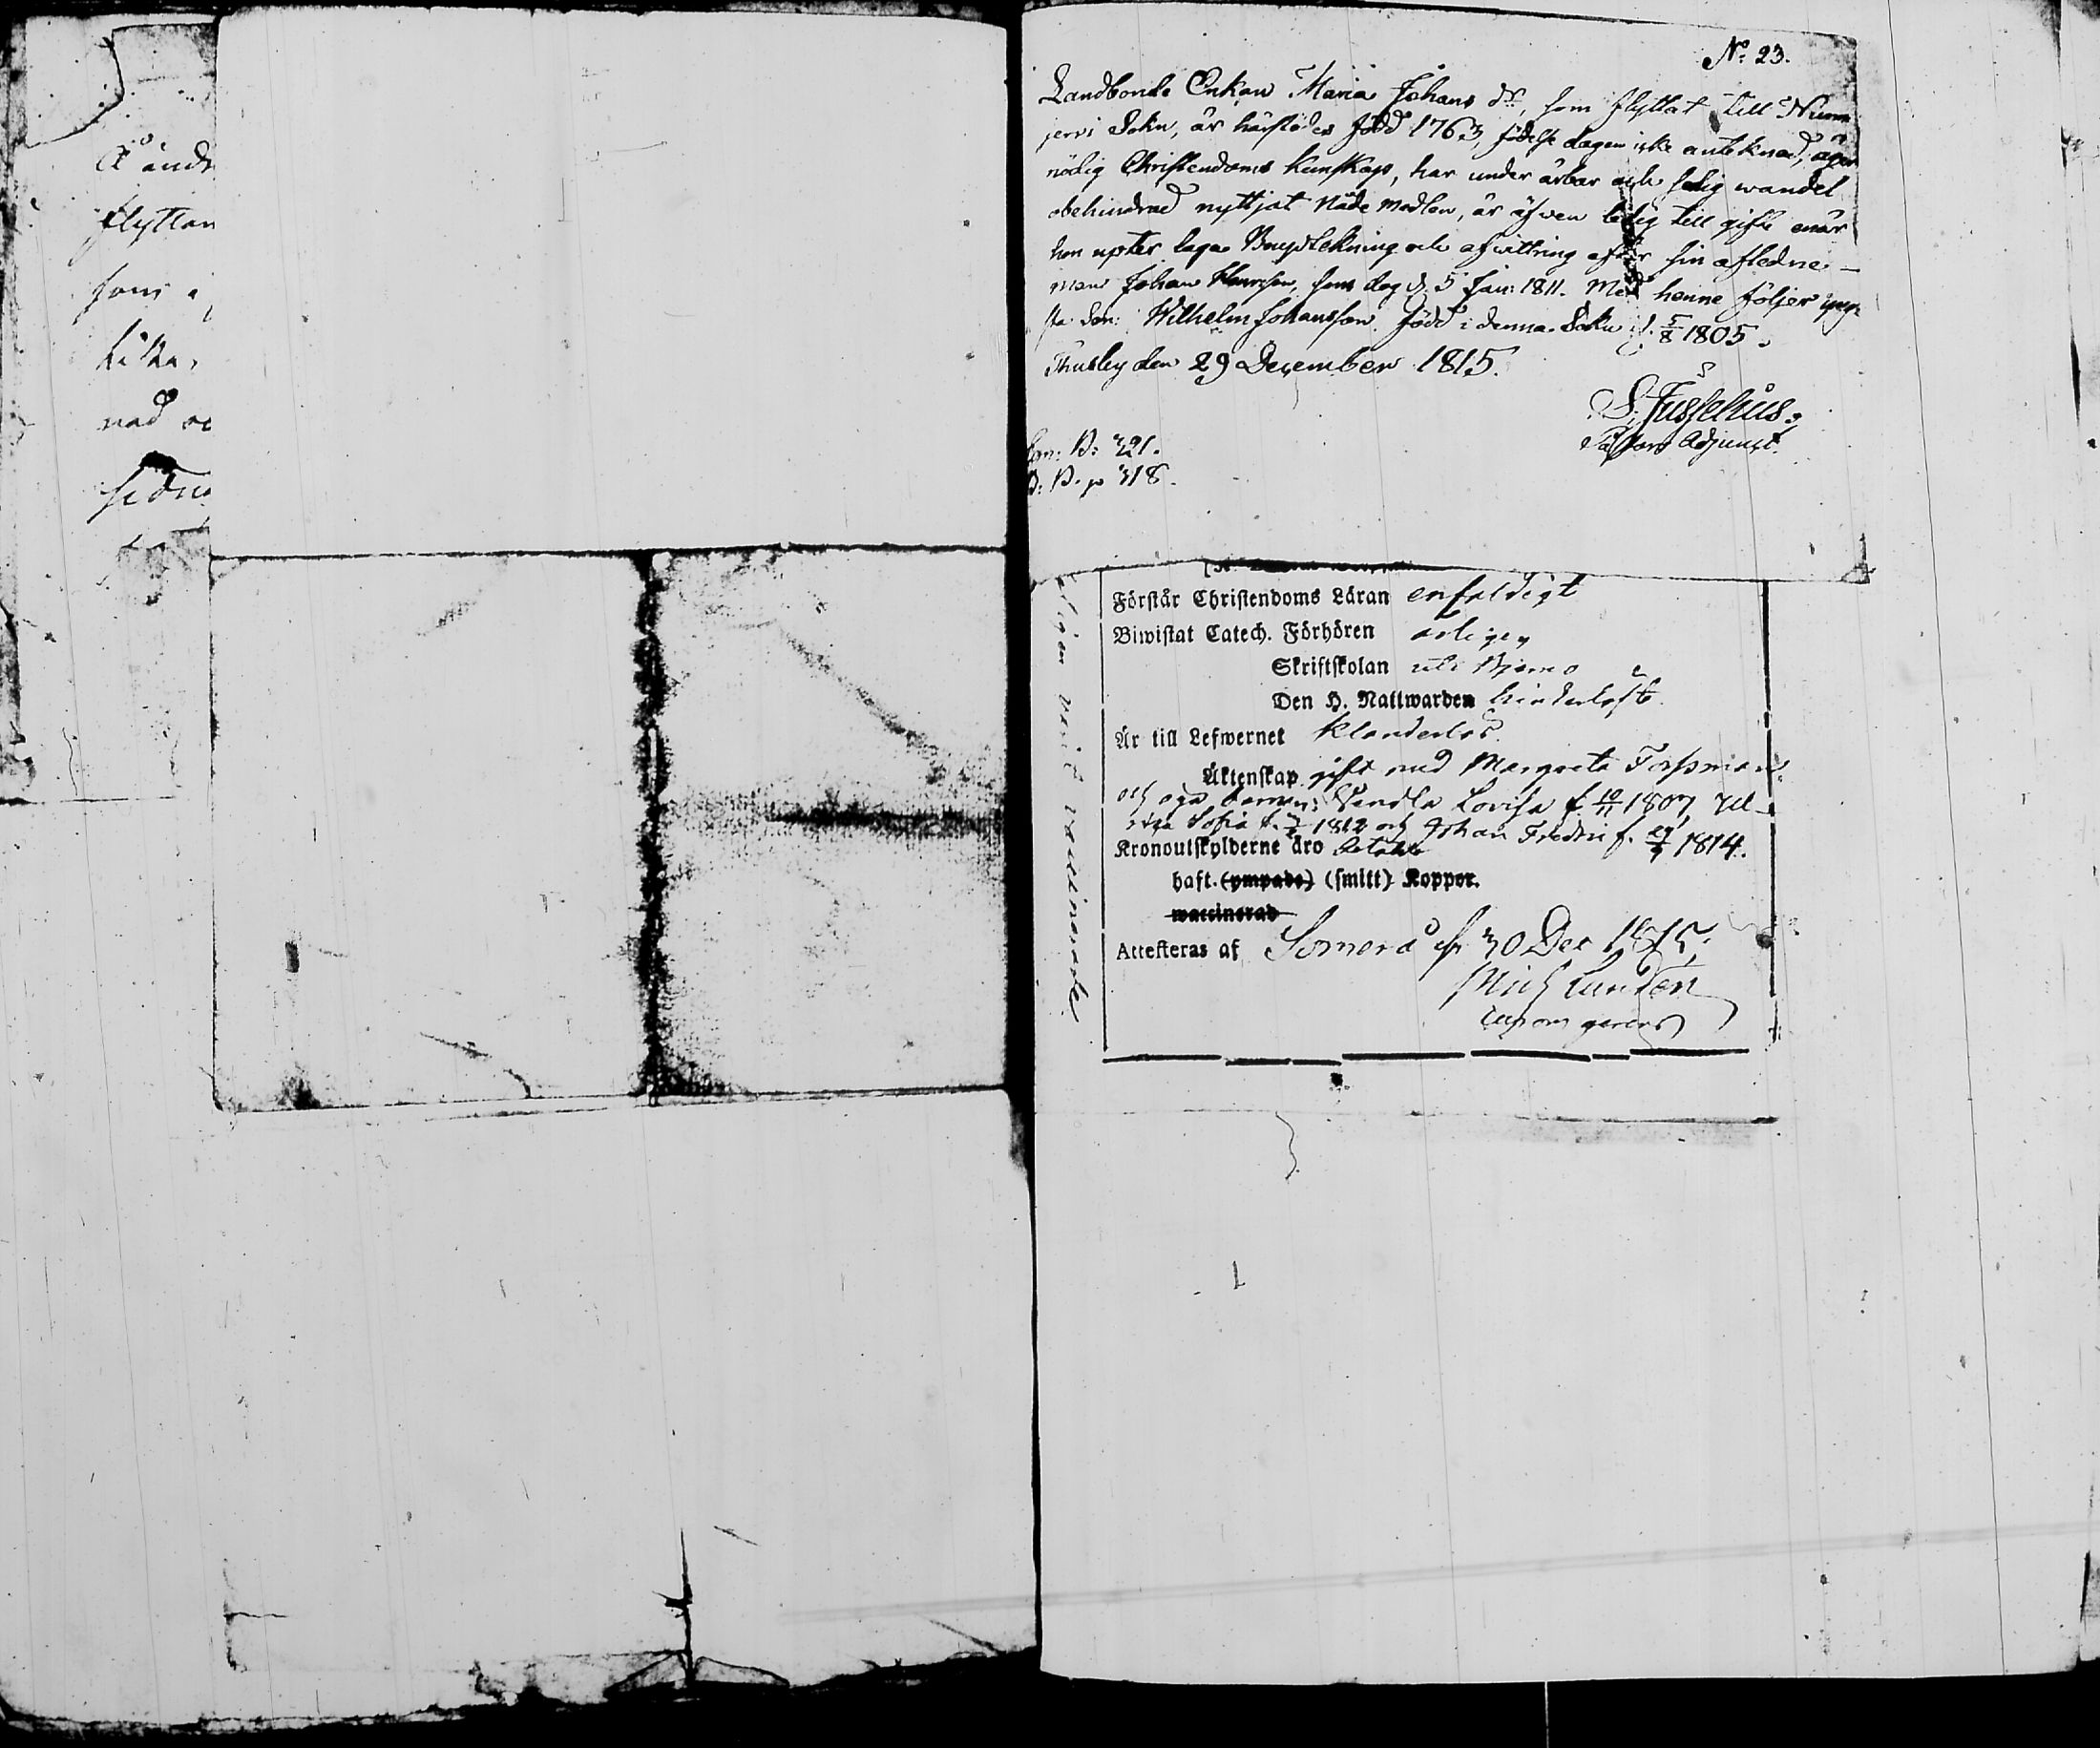 Å ändr
flyttan
som
lika
nad oc
sedn
No 23.
Landbonde Enkan Maria Johans dr, som flyttat till Num̄
jervi Sokn, är härstädes född 1763, födelse dagen icke anteknad, äger
nödig Christendoms kunskap, har under ärbar och sedig wandel
obehindrad nyttjat Nåde medlen, är äfwen ledig till gifte enär
hon upter laga Bouptekning och afwittring efter sin aflednе
man Johan Henricsson, som dog d. 5 Jan: 1811. Med henne följer yng-
sta Son: Wilhelm Johansson född i denna Sokn d. 5/8 1805.
Thusby den 29 December 1815.
S. Fusselius,
Pastors Adjunct.
Com: B: 321.
B. p 318.
Förstår Christendoms Läran enfaldigt
Biwistat Catech. Förhören årligen
Skriftskolan uti Bjerno
Den H. Nattwarden hinderlöst
Är till Lefwernet klanderlös
Äktenskap gift med Margreta Forssman
och äga barnen: Wendla Lovisa f. 10/11 1807, Ul-
rica Sofia f. 1812 och Johan Fredric f. 29/9 1814.
Kronoutskylderne äro betalte
haft (ympade) (smitt) Koppor.
waccinerad
Attesteras af Somero d. 30 Dec 1815.
Mich Lunden
vacinerade